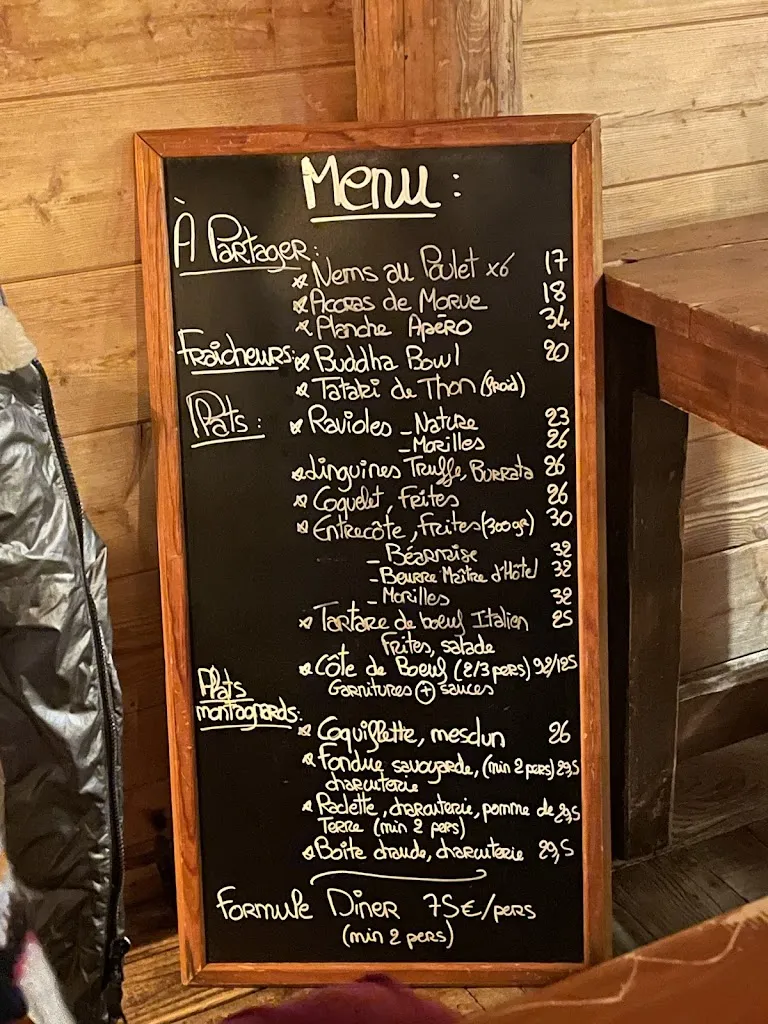 Menu :
À Partager :
Nems au Poulet x6 17
Acoras de Morue 18
Planche Apéro 34
Fraîcheurs : Buddha Bowl 20
Tataki de Thon (froid)
Plats : Ravioles - Nature 23
- Morilles 26
Linguines Truffe, Burrata 26
Coquelet, frites 26
Entrecôte, frites (300gr) 30
- Béarnaise 32
- Beurre Maître d'Hôtel 32
- Morilles 32
Tartare de boeuf Italien 25
Frites, salade
Côte de Boeuf (2/3 pers) 92/125
Garnitures + sauces
Plats montagnards :
Coquillette, mesclun 26
Fondue savoyarde, (min 2 pers) 29,5
charcuterie
Raclette, charcuterie, pomme de 29,5
Terre (min 2 pers)
Boite chaude, charcuterie 29,5
Formule Diner 75€/pers
(min 2 pers)